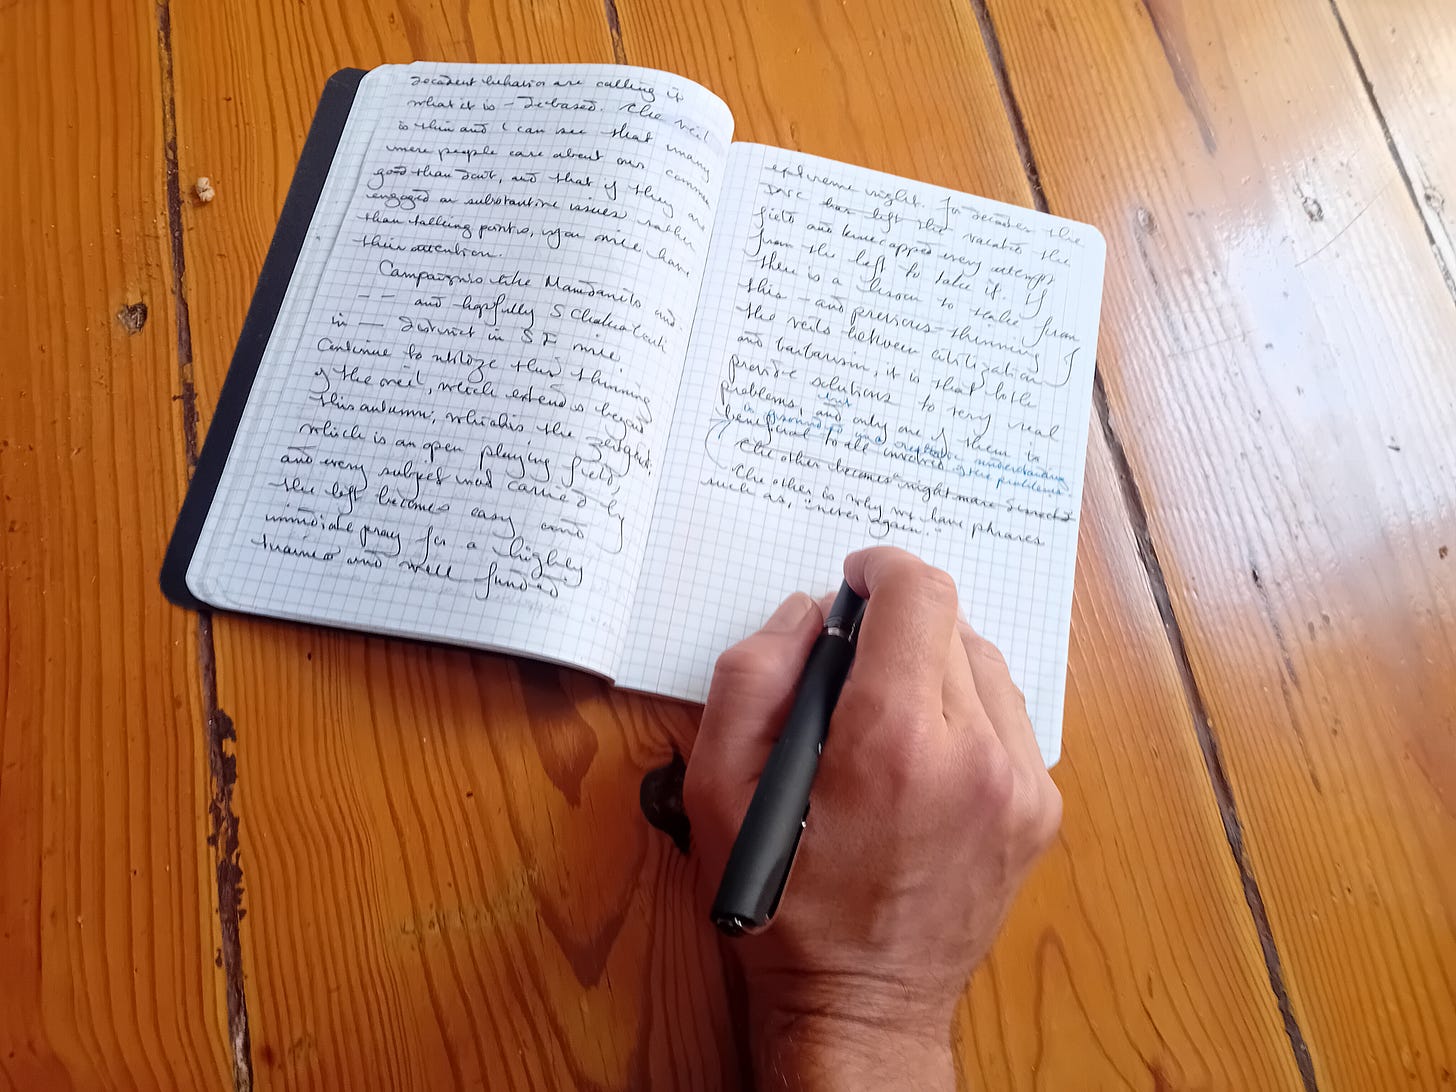 decadent behavior are calling it
what it is – debased. The veil
is thin and I can see that many
more people care about our common
good than don't, and that if they are
engaged on substantive issues rather
than talking points, you will have
their attention.
Campaigns like Mamdani's and
– – and hopfully S Chakrabarti
in — district in SF will
continue to utilize this thinning
of the veil, which extends beyond
this autumn, which is the zeitgeist
which is an open playing field,
and every subject not carried by
the left becomes easy and
immidiate pray for a highly
trained and well funded
extreme right. For decades the
DNC has left the vacated the
field and kneecapped every attempt
from the left to take it. If
there is a lesson to take from
this – and previous – thinning of
the veils between civilization
and barbarism, it is that both
provide solutions to very real
problems, and but only one of them is
is grounded in a realistic understanding
beneficial to all involved of the problems.
The other becomes nightmare
The other is why we have phrases
such as, "never again."